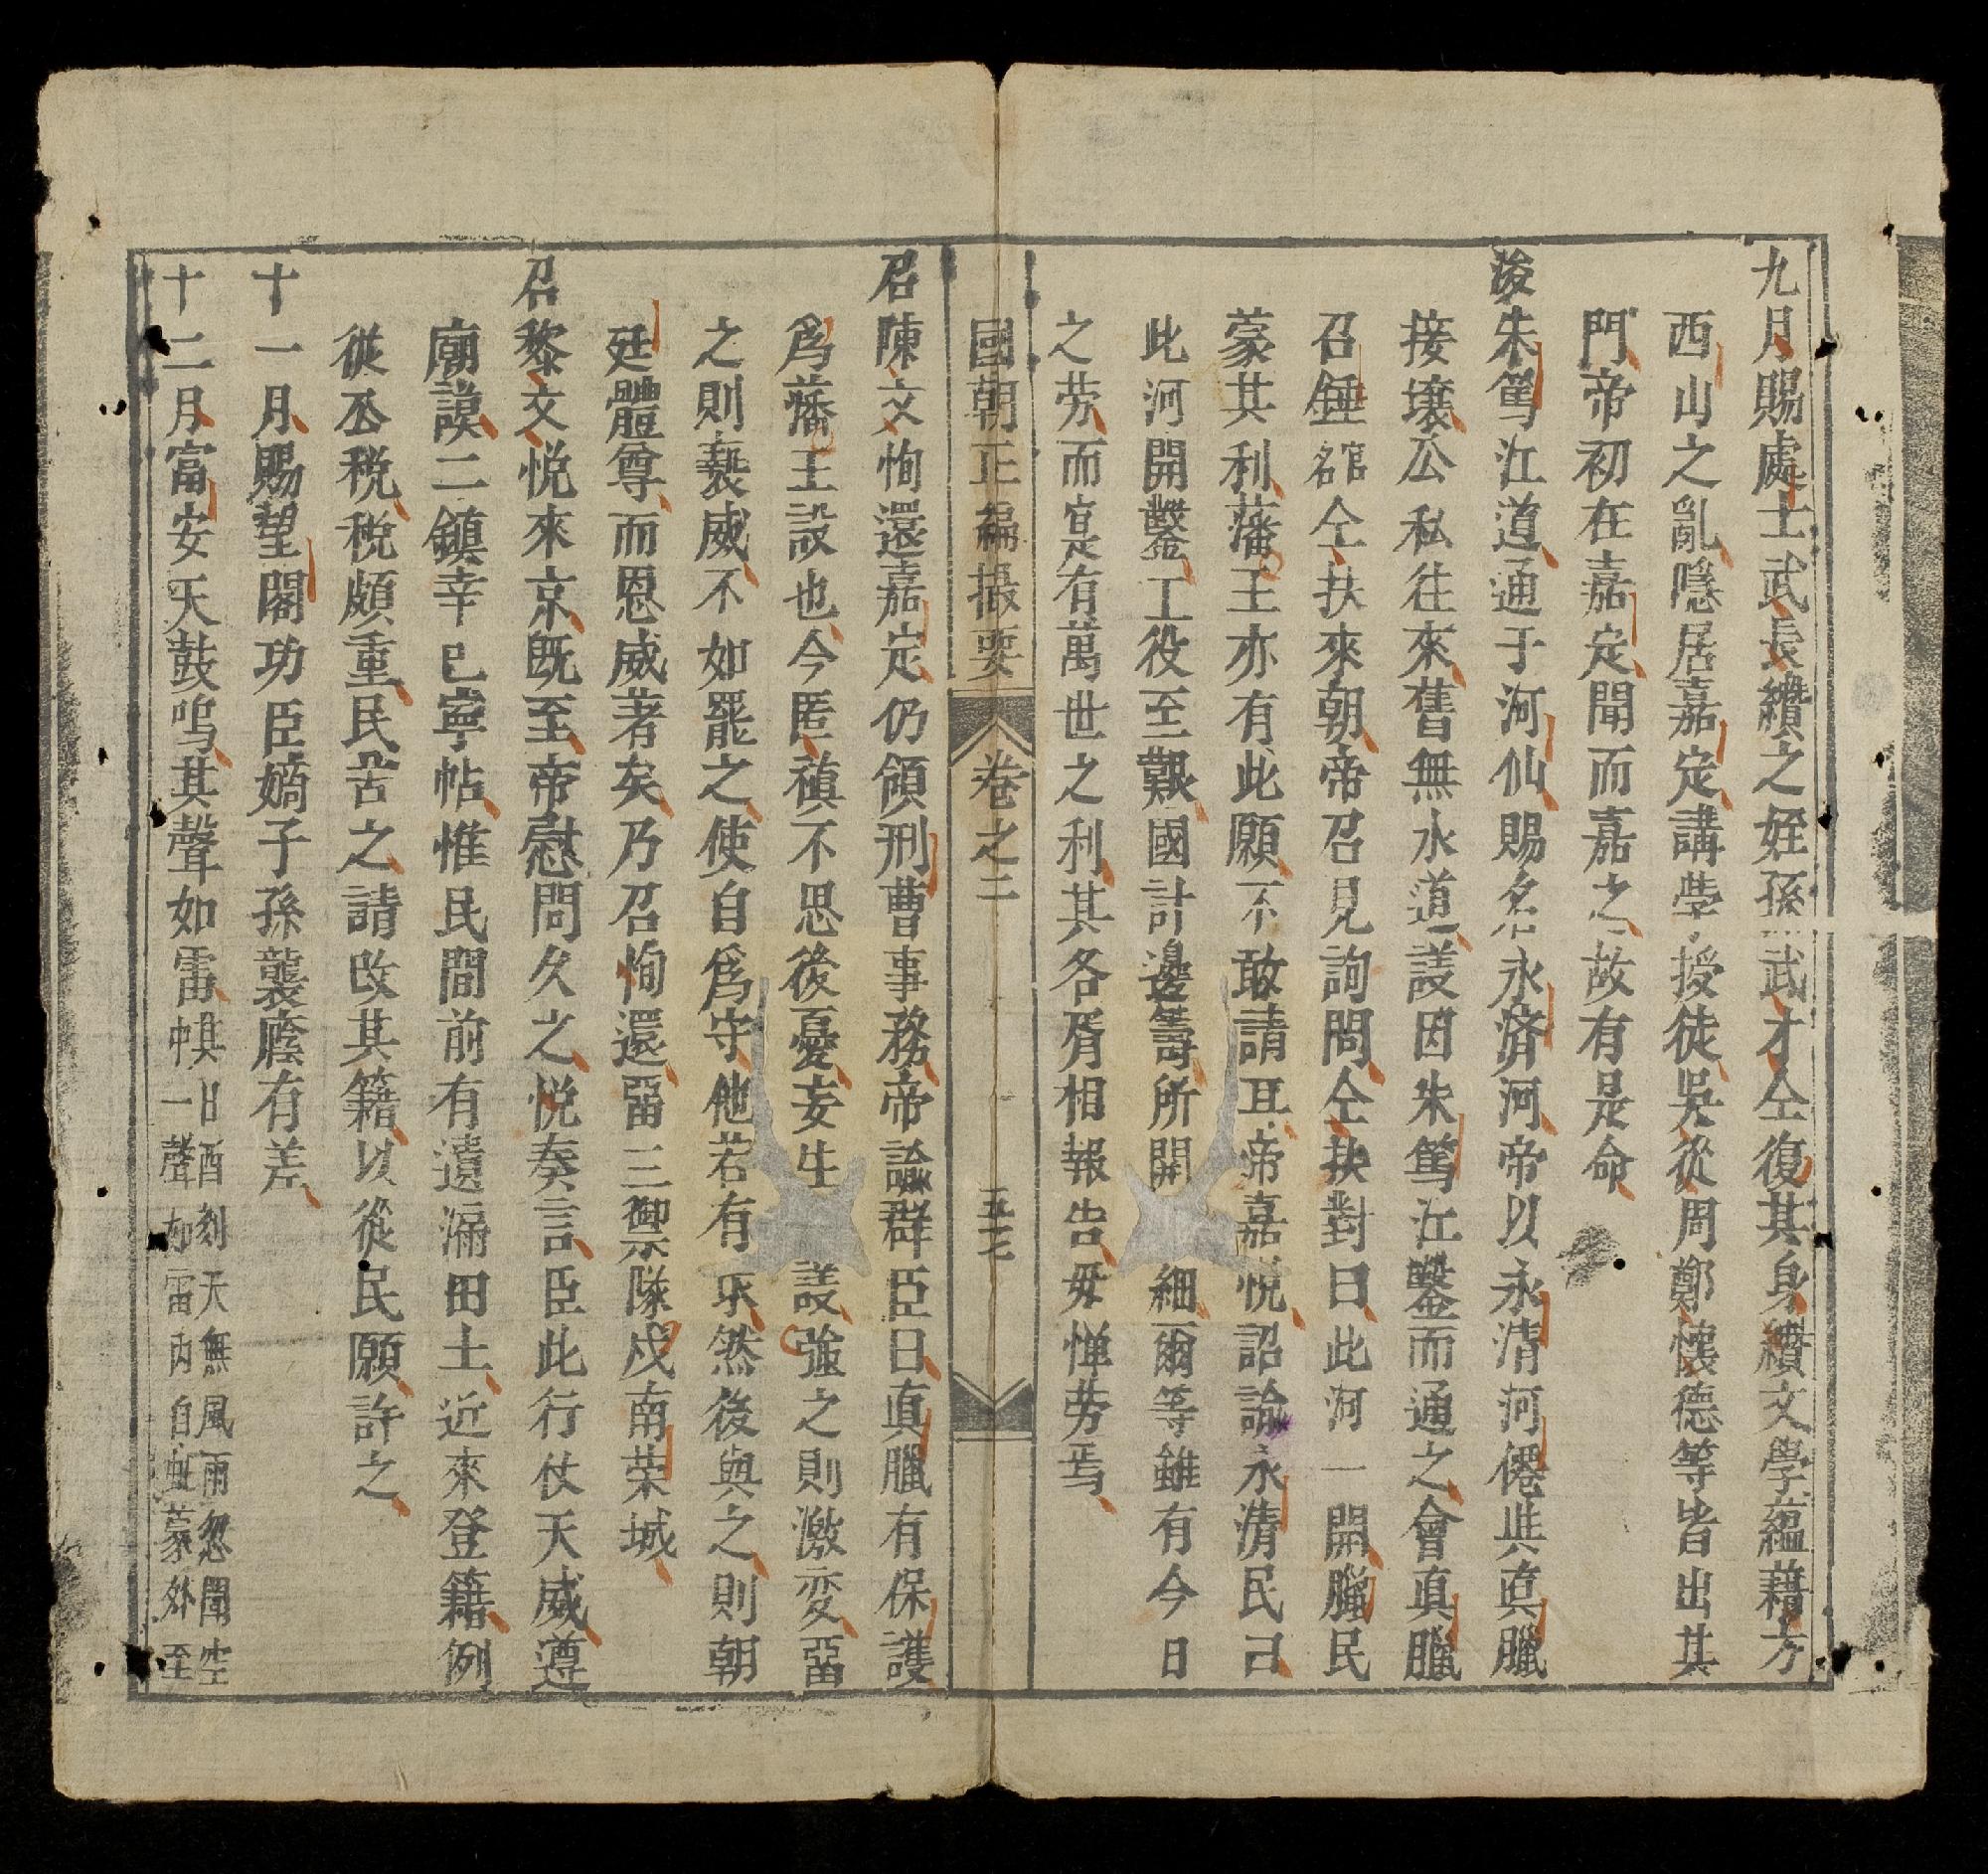 九月賜處士武長纘之姪孫武才仝復其身纘文學蘊藉方
西山之亂隱居嘉定講學授徒吳從周鄭懷德等皆出其
門帝初在嘉定聞而嘉之故有是命
浚朱篤江道通于河仙賜名永濟河帝以永清河僊與真臘
接壤公私往來舊無水道議因朱篤江鑿而通之會真臘
召錘錧仝扶來朝帝召見詢問仝扶對曰此河一開臘民
蒙其利藩王亦有此願不敢請耳帝嘉悅詔諭永清民己
此河開鑿工役至艱國計邊籌所開 細爾等雖有今日
之劳而寔有萬世之利其各胥相報告毋惮劳焉
國朝正編撮要 卷之二 五七
召陳文恂還嘉定仍領刑曹事務帝諭群臣曰真臘有保護
爲藩王設也今匿禛不思後憂妄生 議強之則激変畱
之則褻威不如罷之使自爲守他若有乐然後與之則朝
廷體尊而恩威著矣乃召恂還畱三禦隊戍南荣城
召黎文悅來京既至帝慰問久之悅奏言臣此行仗天威遵
廟謨二鎮幸已寧帖惟民間前有遺漏田土近來登籍例
從丕稅稅頗重民苦之請改其籍以從民願許之
十一月賜望閣功臣嫡子孫襲廕有差
十二月富安天鼓鳴其聲如雷其日酉刻天無風雨忽闻空
中一聲如雷内自虬蒙外至